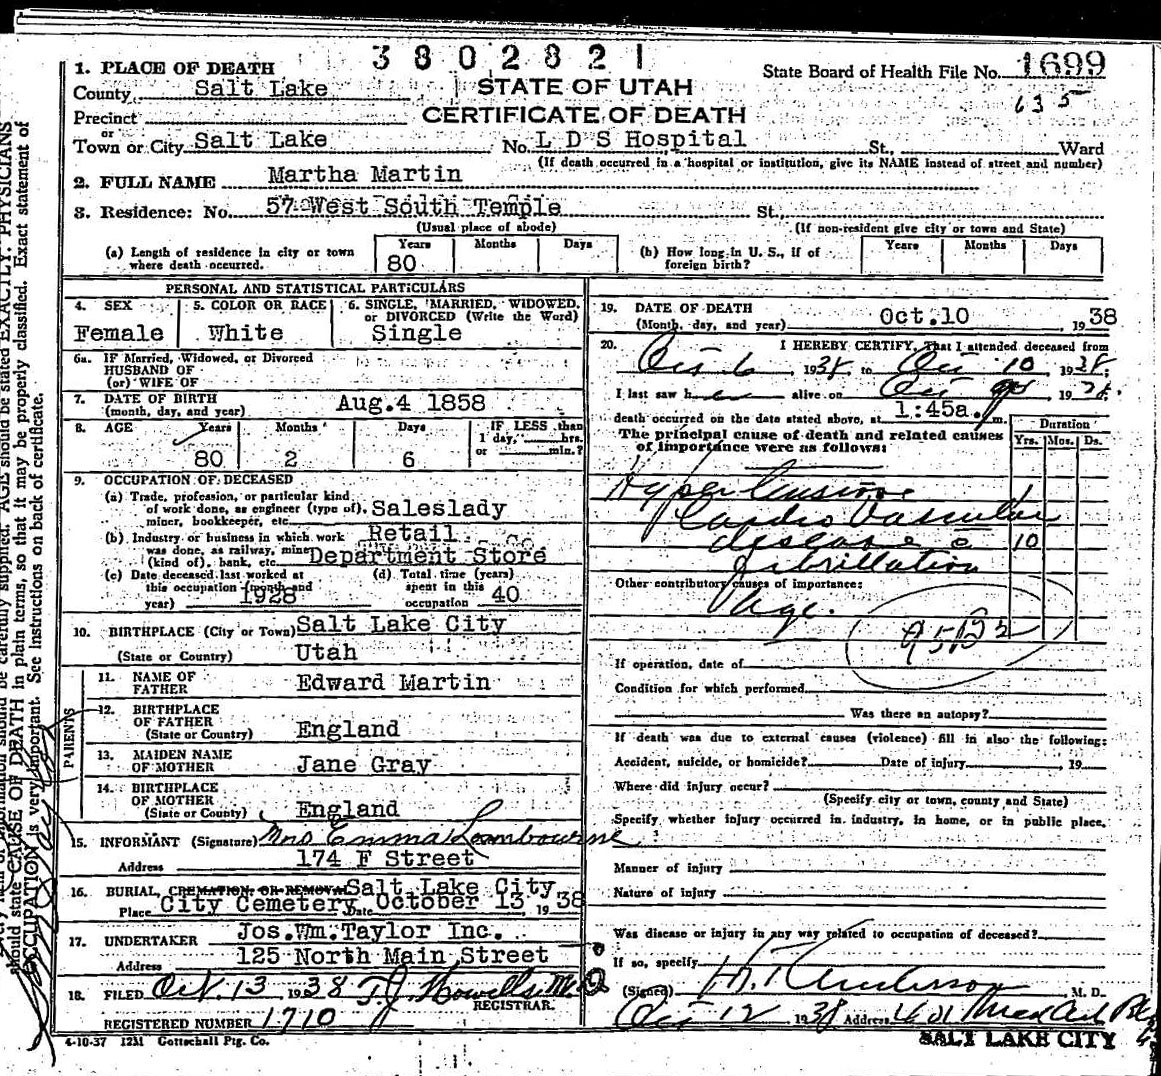 3802821
1. PLACE OF DEATH
State Board of Health File No. 1699
County Salt Lake
STATE OF UTAH
635
Precinct
CERTIFICATE OF DEATH
or
Town or City Salt Lake No. L D S Hospital St., Ward
(If death occurred in a hospital or institution, give its NAME instead of street and number)
2. FULL NAME Martha Martin
3. Residence: No. 57 West South Temple St.,
(Usual place of abode) (If non-resident give city or town and State)
(a) Length of residence in city or town where death occurred. Years 80 Months Days
(b) How long in U. S., if of foreign birth? Years Months Days
PERSONAL AND STATISTICAL PARTICULARS
4. SEX Female
5. COLOR OR RACE White
6. SINGLE, MARRIED, WIDOWED, or DIVORCED (Write the Word) Single
6a. IF Married, Widowed, or Divorced
HUSBAND OF
(or) WIFE OF
7. DATE OF BIRTH
(month, day, and year) Aug.4 1858
8. AGE Years 80 Months 2 Days 6 IF LESS than 1 day, hrs. or min.?
9. OCCUPATION OF DECEASED
(a) Trade, profession, or particular kind
of work done, as engineer (type of), Saleslady
miner, bookkeeper, etc.
(b) Industry or business in which work Retail
was done, as railway, mine Department Store
(kind of), bank, etc.
(c) Date deceased last worked at
this occupation (month and
year) 1928
(d) Total time (years)
spent in this
occupation 40
10. BIRTHPLACE (City or Town) Salt Lake City
(State or Country) Utah
PARENTS
11. NAME OF
FATHER Edward Martin
12. BIRTHPLACE
OF FATHER
(State or Country) England
13. MAIDEN NAME
OF MOTHER Jane Gray
14. BIRTHPLACE
OF MOTHER
(State or County) England
15. INFORMANT (Signature) Mrs Emma Lambourne
Address 174 F Street
16. BURIAL, CREMATION, OR REMOVAL Salt Lake City
Place City Cemetery Date October 13, 1938
17. UNDERTAKER Jos.Wm.Taylor Inc.
Address 125 North Main Street
18. FILED Oct. 13 1938 T.J. Howells M.D.
REGISTRAR.
REGISTERED NUMBER 1710
4-10-37 12M Gottschall Ptg. Co.
19. DATE OF DEATH
(Month, day, and year) Oct.10, 1938
20. I HEREBY CERTIFY, That I attended deceased from
Oct 6, 1938 to Oct 10, 1938;
I last saw her alive on Oct 1938.
death occurred on the date stated above, at 1:45a. m.
The principal cause of death and related causes
of importance were as follows:
Duration
Yrs. Mos. Ds.
Hypertensive
Cardio Vascular
disease c 10
fibrillation
Other contributory causes of importance:
Age.
If operation, date of
Condition for which performed
Was there an autopsy?
If death was due to external causes (violence) fill in also the following:
Accident, suicide, or homicide? Date of injury, 19
Where did injury occur?
(Specify city or town, county and State)
Specify whether injury occurred in industry, in home, or in public place.
Manner of injury
Nature of injury
Was disease or injury in any way related to occupation of deceased?
If so, specify
(Signed) Anderson M. D.
Oct 12 1938 Address
SALT LAKE CITY
should state CAUSE OF DEATH in plain terms, so that it may be properly classified. Exact statement of
OCCUPATION is very important. See instructions on back of certificate.